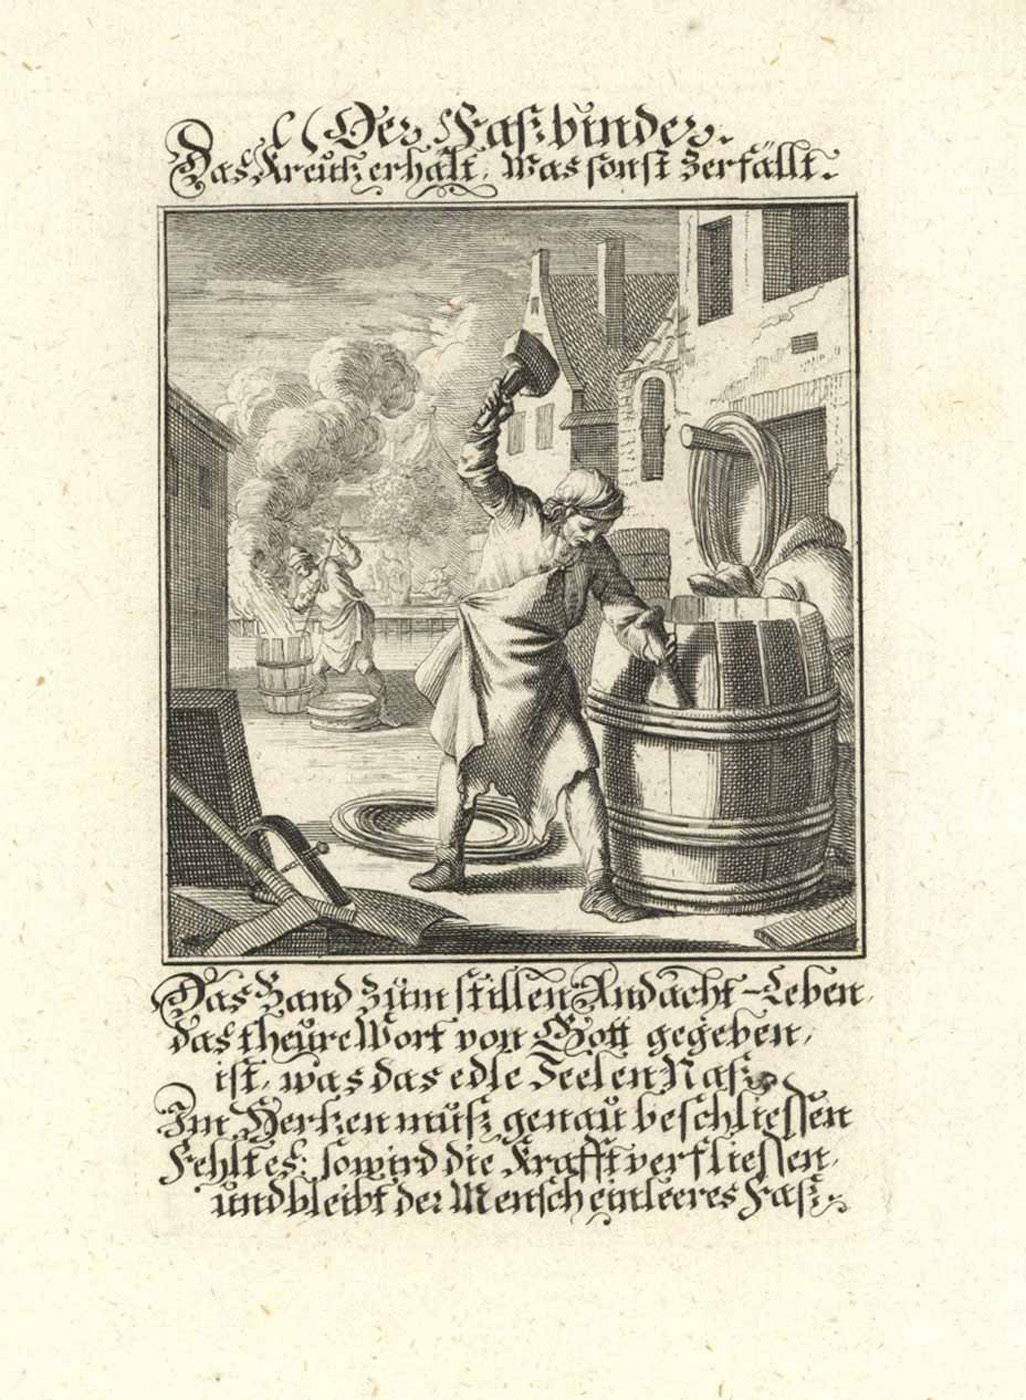 Der Faßbinder.
Das Kreutz erhält, Was sonst Zerfällt.
Das Band zum stillen Andacht-Leben,
das theure Wort von Gott gegeben,
ist, was das edle Seelen Naß,
Im Hertzen muß genau beschliessen
Fehlt es: so wird die Krafft verfliessen,
und bleibt der Mensch ein leeres Faß.